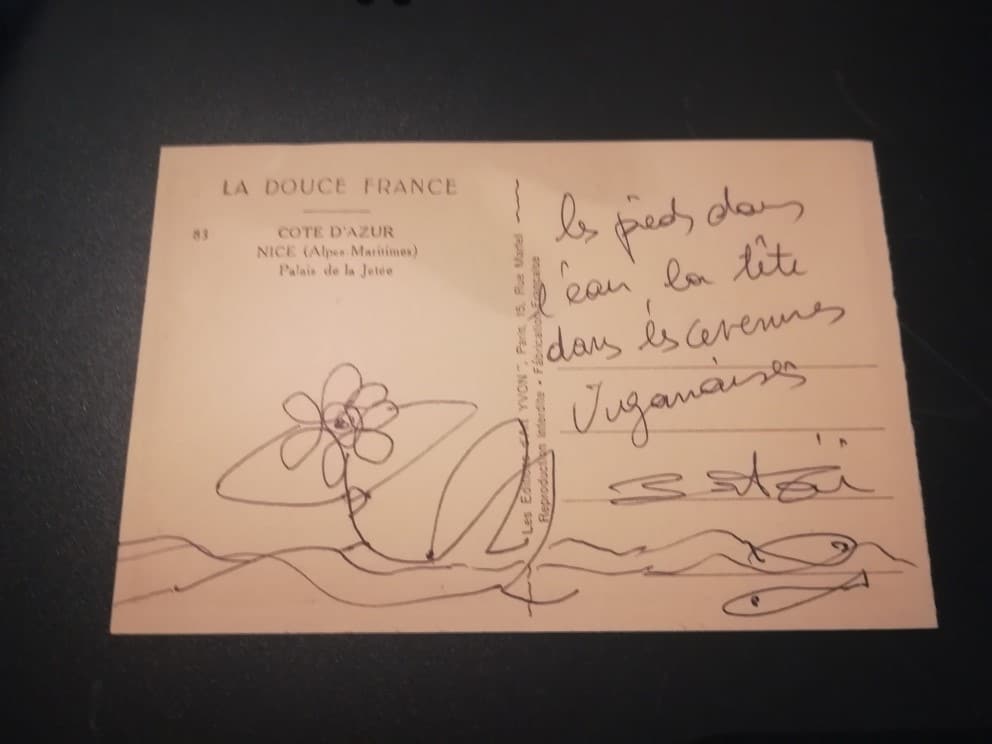 LA DOUCE FRANCE
83
COTE D'AZUR
NICE (Alpes-Maritimes)
Palais de la Jetée
Les Editions D'ART YVON", Paris, 15, Rue Martel
Reproduction interdite • Fabrication Française
les pieds dans
l'eau, la tête
dans les cevennes
Viganaises